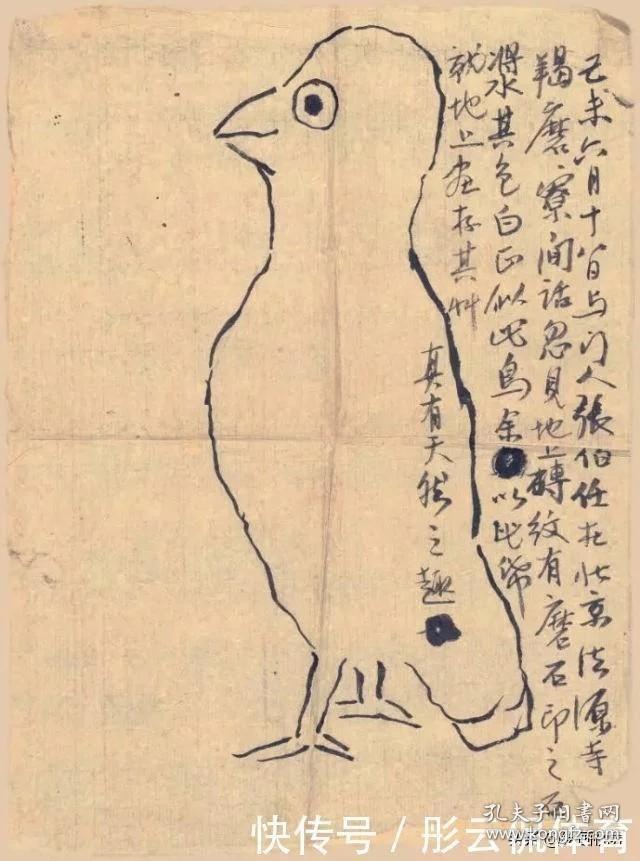 己未六月十八日与门人張伯任在北京法源寺
羯磨寮閒話忽見地上磚紋有磨石印之石
漿水其色白正似此鳥余以此帋
就地上画存其艸
真有天然之趣
孔夫子旧書网
www.kongfz.com
快传号/彤云
体育